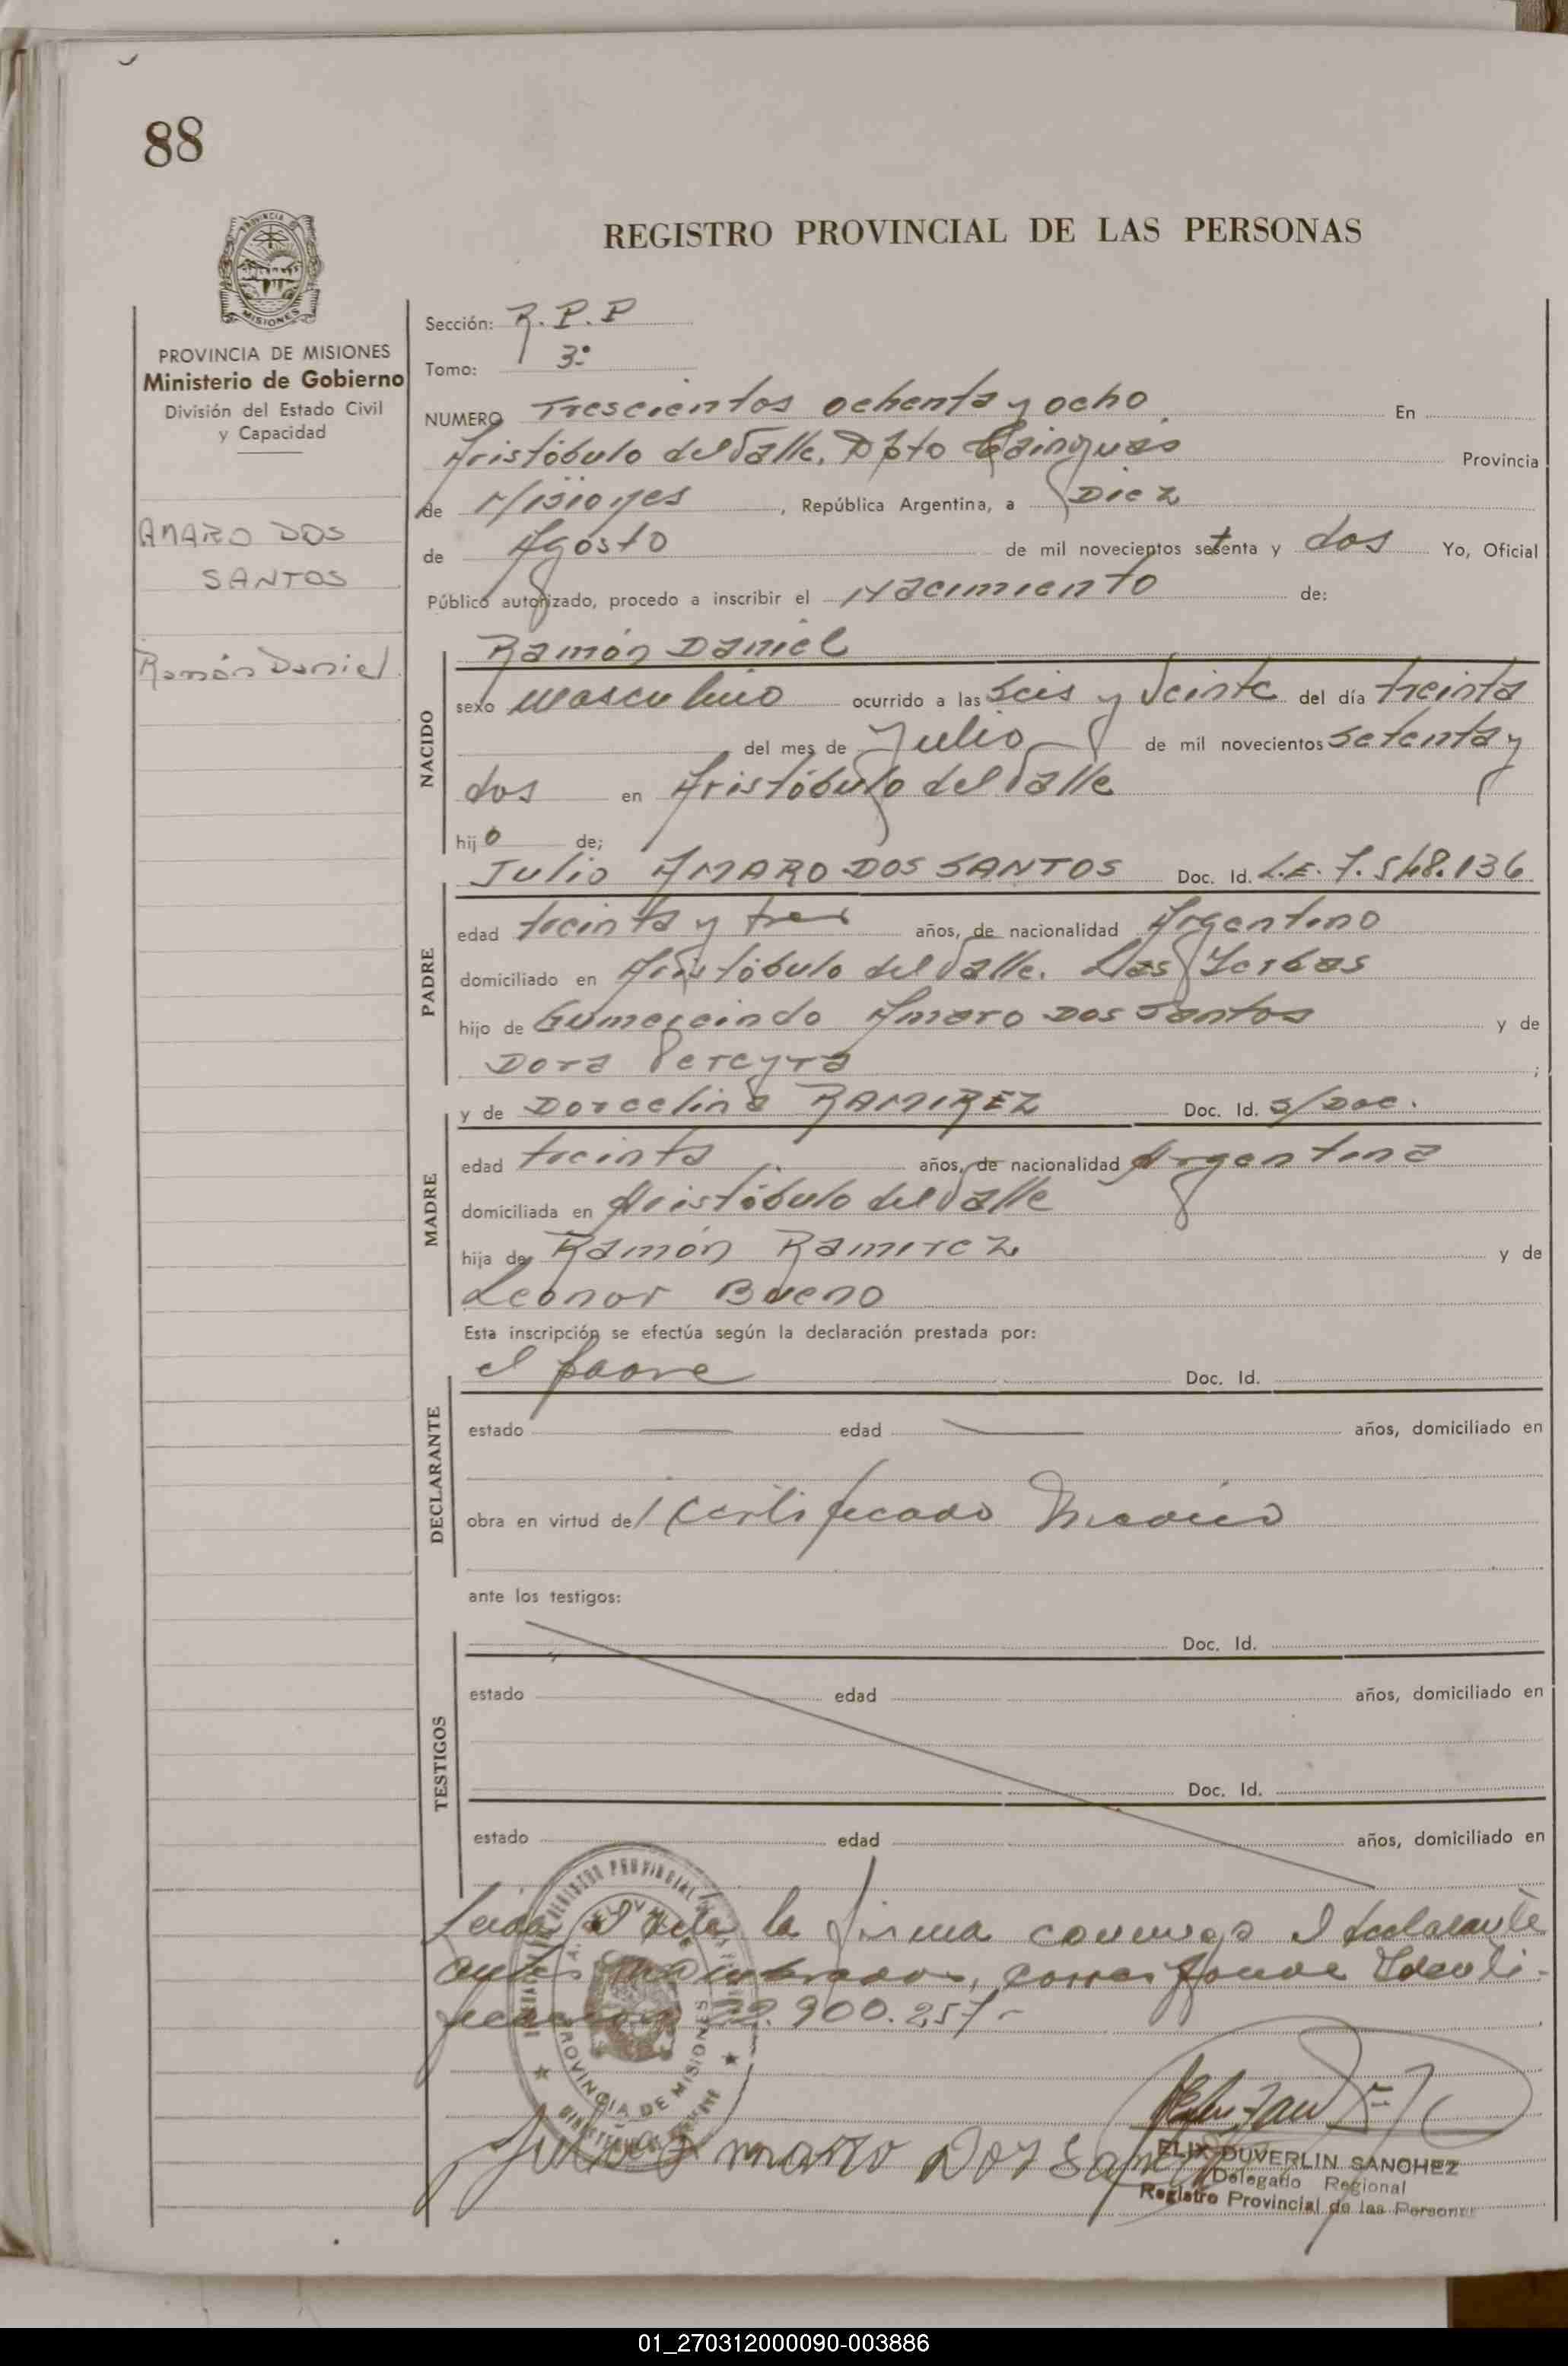 88
PROVINCIA
MISIONES
REGISTRO PROVINCIAL DE LAS PERSONAS
PROVINCIA DE MISIONES
Ministerio de Gobierno
División del Estado Civil
y Capacidad
AMARO DOS
SANTOS
Ramón Daniel
Sección: R.P.P
Tomo: 3º
NUMERO Trescientos ochenta y ocho En
Aristóbulo del Valle, Dpto Cainguás Provincia
de Misiones, República Argentina, a Diez
de Agosto de mil novecientos setenta y dos Yo, Oficial
Público autorizado, procedo a inscribir el Nacimiento de:
Ramón Daniel
NACIDO
sexo masculino ocurrido a las seis y veinte del día treinta
del mes de Julio de mil novecientos setenta y
dos en Aristóbulo del Valle
hijo de;
Julio AMARO DOS SANTOS Doc. Id. L.E. 7.548.136
PADRE
edad treinta y tres años, de nacionalidad Argentino
domiciliado en Aristóbulo del Valle. Las Yerbas
hijo de Gumercindo Amaro Dos Santos y de
Dora Pereyra ;
y de Dorcelina RAMIREZ Doc. Id. s/Doc.
MADRE
edad treinta años, de nacionalidad Argentina
domiciliada en Aristóbulo del Valle
hija de Ramón Ramirez y de
Leonor Bueno
Esta inscripción se efectúa según la declaración prestada por:
el padre Doc. Id.
DECLARANTE
estado edad años, domiciliado en
obra en virtud de Certificado Medico
ante los testigos:
Doc. Id.
TESTIGOS
estado edad años, domiciliado en
Doc. Id.
estado edad años, domiciliado en
Leida el acta la firma conmigo el declarante
antes nombrado, corresponde Identi-
ficación 22.900.257.-
PROVINCIA DE MISIONES
Julio Amaro Dos Santos
ELIX DUVERLIN SANCHEZ
Delegado Regional
Registro Provincial de las Personas
01_270312000090-003886